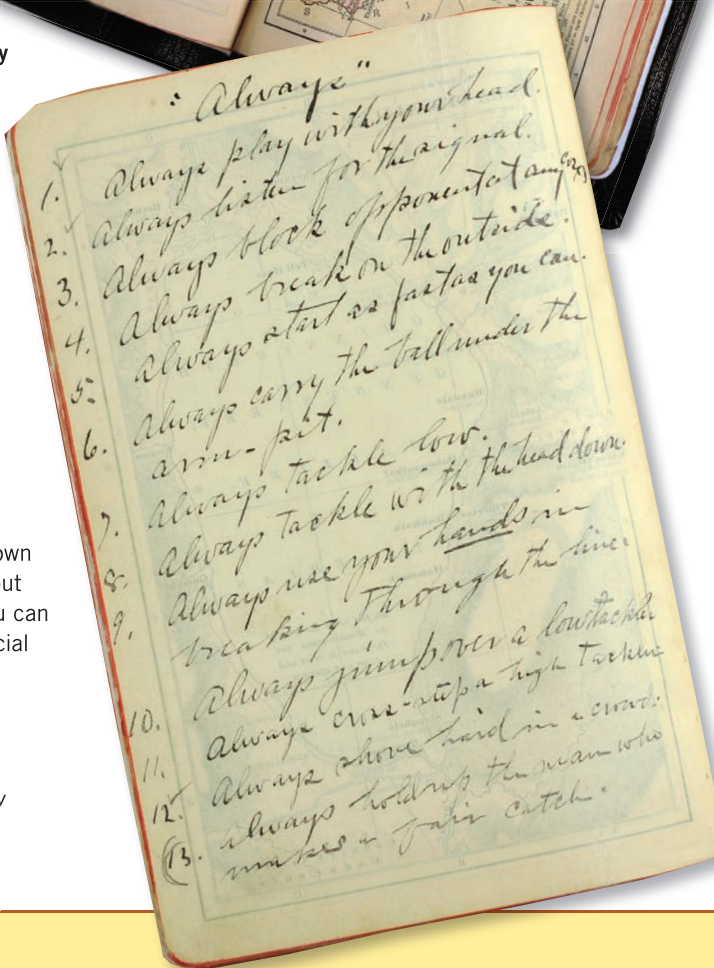 y
"Always"
1. Always play with your head.
2. Always listen for the signal.
3. Always block opponent at any cost
4. Always break on the outside.
5. Always start as fast as you can.
6. Always carry the ball under the
arm-pit.
7. Always tackle low.
8. Always tackle with the head down.
9. Always use your hands in
breaking through the line.
10. Always jump over a low tackle
11. Always cross-step a high tackler
12. Always shove hard in a crowd.
13. Always hold up the man who
makes a fair catch.
own
out
u can
cial
y